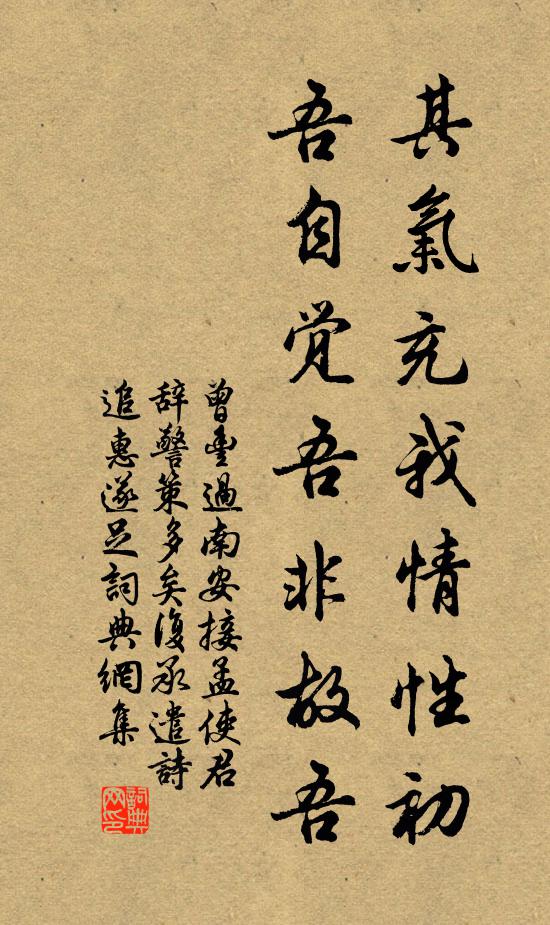 其氣充我情性初
吾自覺吾非故吾
曾豊過南安接孟使君
辞警策多矣復承遣詩
追惠遂足詞典網集
詞典网印